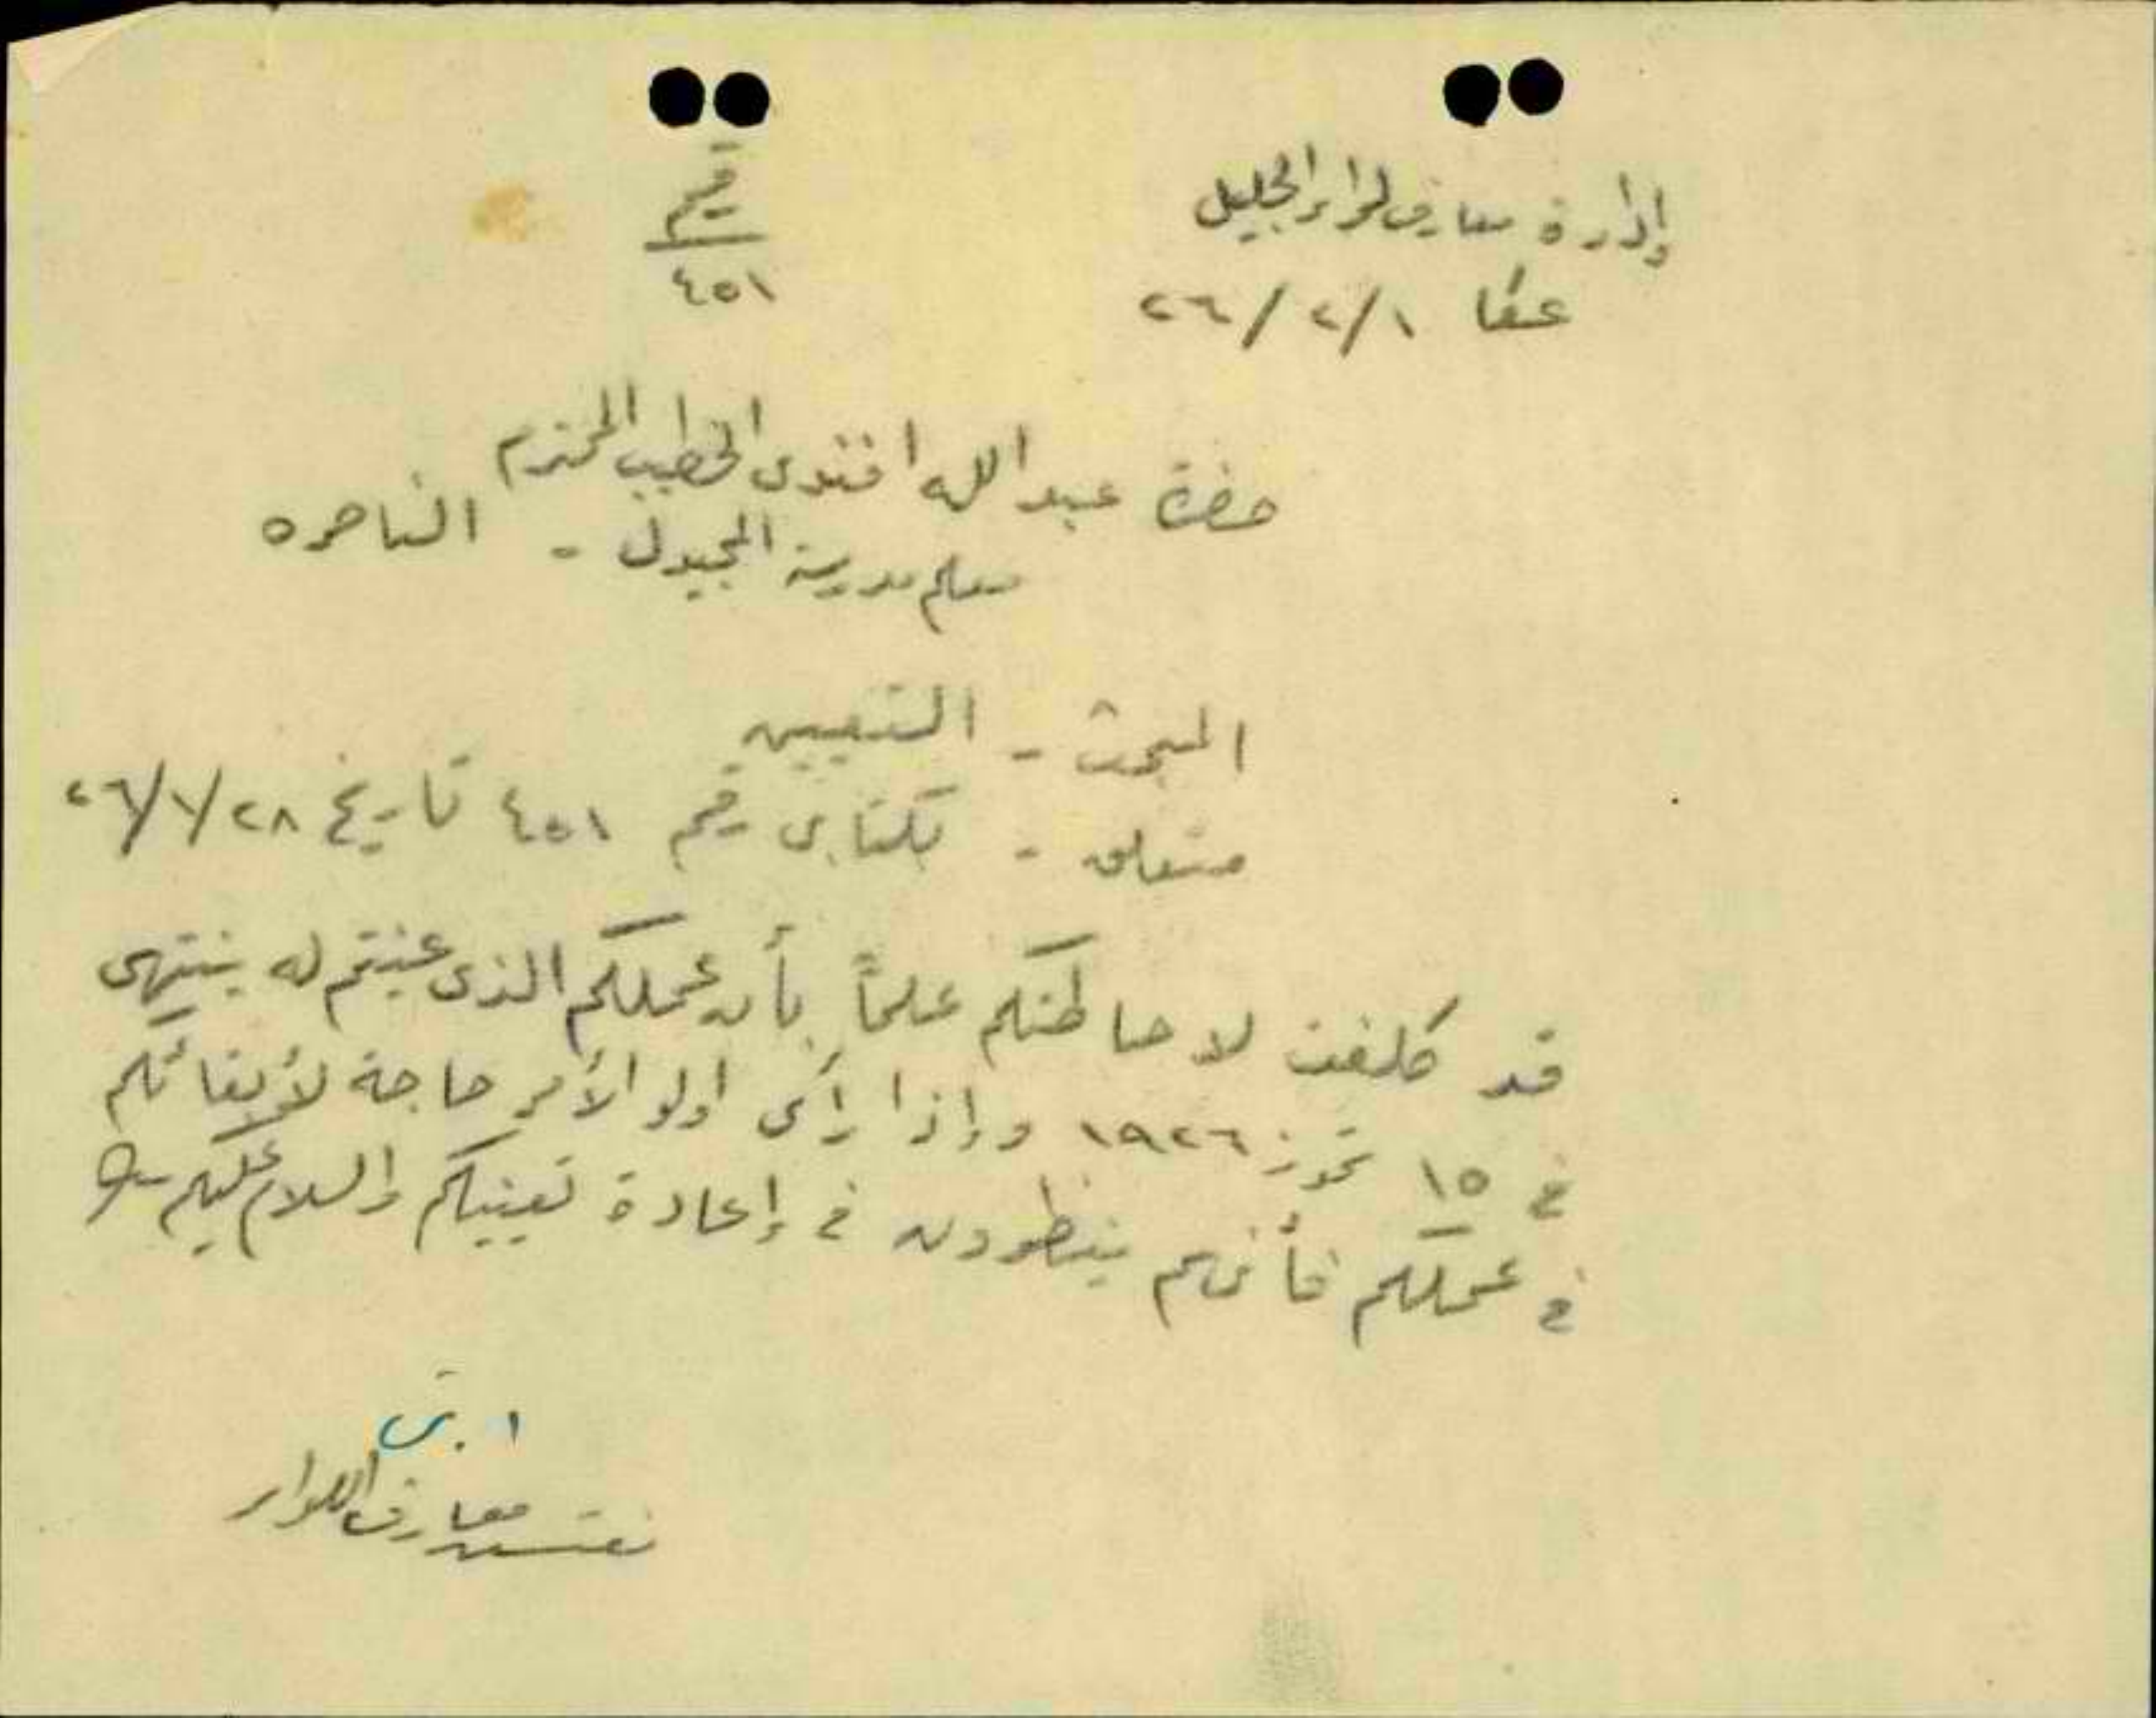 إدارة معارف لواء الجليل
عكا ١/٢/٢٦
رقم
٤٥١
حضرة عبد الله افندي الخطيب المحترم
معلم مدرسة المجيدل - الناصره
المبحث - التعيين
متعلق - بكتابى رقم ٤٥١ تاريخ ٢٨/١/٢٦
قد كلفت لاحاطتكم علماً بأن عملكم الذى عينتم له ينتهى
في ١٥ تموز ١٩٢٦ وإذا رأى اولو الأمر حاجة لأبقائكم
في عملكم فأنهم ينظرون في إعادة تعيينكم والسلام عليكم
مفتش معارف اللواء